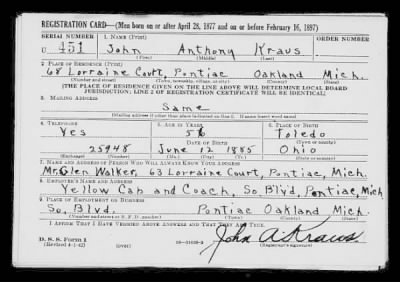 REGISTRATION CARD—(Men born on or after April 28, 1877 and on or before February 16, 1897)
SERIAL NUMBER 1. NAME (Print)
U 451 John Anthony Kraus
(First) (Middle) (Last)
2. PLACE OF RESIDENCE (Print)
68 Lorraine Court, Pontiac Oakland Mich.
(Number and street) (Town, township, village, or city) (County) (State)
[THE PLACE OF RESIDENCE GIVEN ON THE LINE ABOVE WILL DETERMINE LOCAL BOARD
JURISDICTION; LINE 2 OF REGISTRATION CERTIFICATE WILL BE IDENTICAL]
3. MAILING ADDRESS
Same
[Mailing address if other than place indicated on line 2. If same insert word same]
4. TELEPHONE 5. AGE IN YEARS 6. PLACE OF BIRTH
Yes 56 Toledo
DATE OF BIRTH (Town or county)
25948 June 12 1885 Ohio
(Exchange) (Number) (Mo.) (Day) (Yr.) (State or country)
7. NAME AND ADDRESS OF PERSON WHO WILL ALWAYS KNOW YOUR ADDRESS
Mr. Glen Walker, 63 Lorraine Court, Pontiac, Mich.
8. EMPLOYER'S NAME AND ADDRESS
Yellow Cab and Coach, So. Blvd, Pontiac, Mich
9. PLACE OF EMPLOYMENT OR BUSINESS
So, Blvd. Pontiac Oakland Mich.
(Number and street or R. F. D. number) (Town) (County) (State)
I AFFIRM THAT I HAVE VERIFIED ABOVE ANSWERS AND THAT THEY ARE TRUE.
D. S. S. Form 1
(Revised 4-1-42) (over) John A. Kraus.